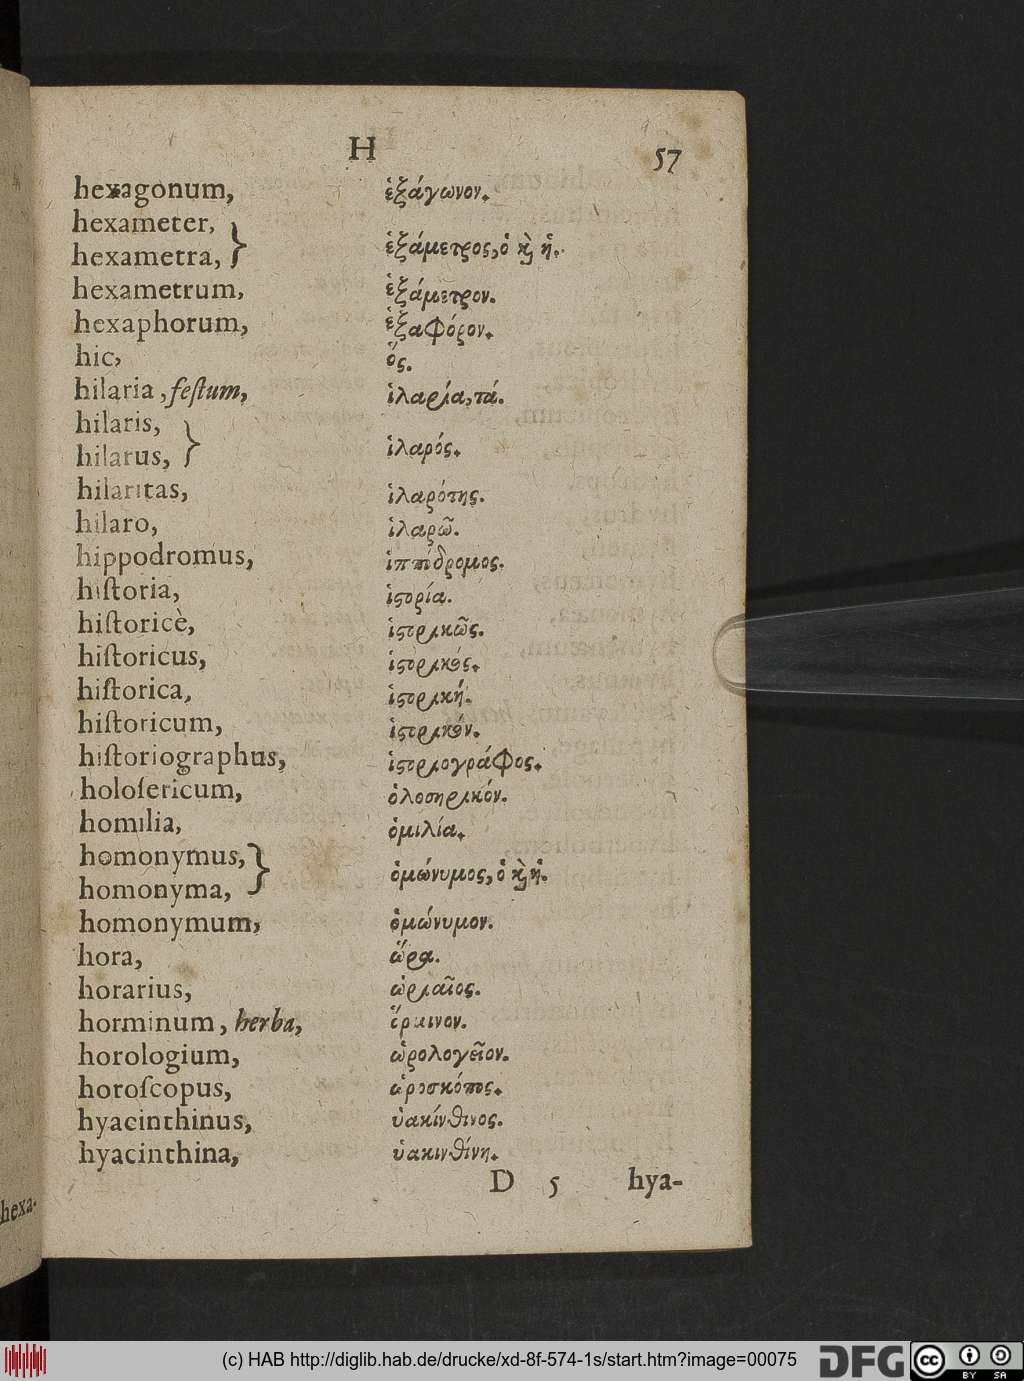 H 57
hexagonum, ἑξάγωνον.
hexameter,
hexametra, } ἑξάμετρος, ὁ κὶ ἡ.
hexametrum, ἑξάμετρον.
hexaphorum, ἑξαφόρον.
hic, ὅς.
hilaria, feſtum, ἱλαρία, τά.
hilaris,
hilarus, } ἱλαρός.
hilaritas, ἱλαρότης.
hilaro, ἱλαρῶ.
hippodromus, ἱππόδρομος.
hiſtoria, ἱϛορία.
hiſtoricè, ἱϛορικῶς.
hiſtoricus, ἱϛορικός.
hiſtorica, ἱϛορική.
hiſtoricum, ἱϛορικόν.
hiſtoriographus, ἱϛοριογράφος.
holoſericum, ὁλοσηρικόν.
homilia, ὁμιλία.
homonymus,
homonyma, } ὁμώνυμος, ὁ κὶ ἡ.
homonymum, ὁμώνυμον.
hora, ὥρα.
horarius, ὡριαῖος.
horminum, herba, ὅρμινον.
horologium, ὡρολογεῖον.
horoſcopus, ὡροσκόπος.
hyacinthinus, ὑακίνθινος.
hyacinthina, ὑακινθίνη.
D 5 hya-
hexa-
(c) HAB http://diglib.hab.de/drucke/xd-8f-574-1s/start.htm?image=00075 DFG cc BY SA